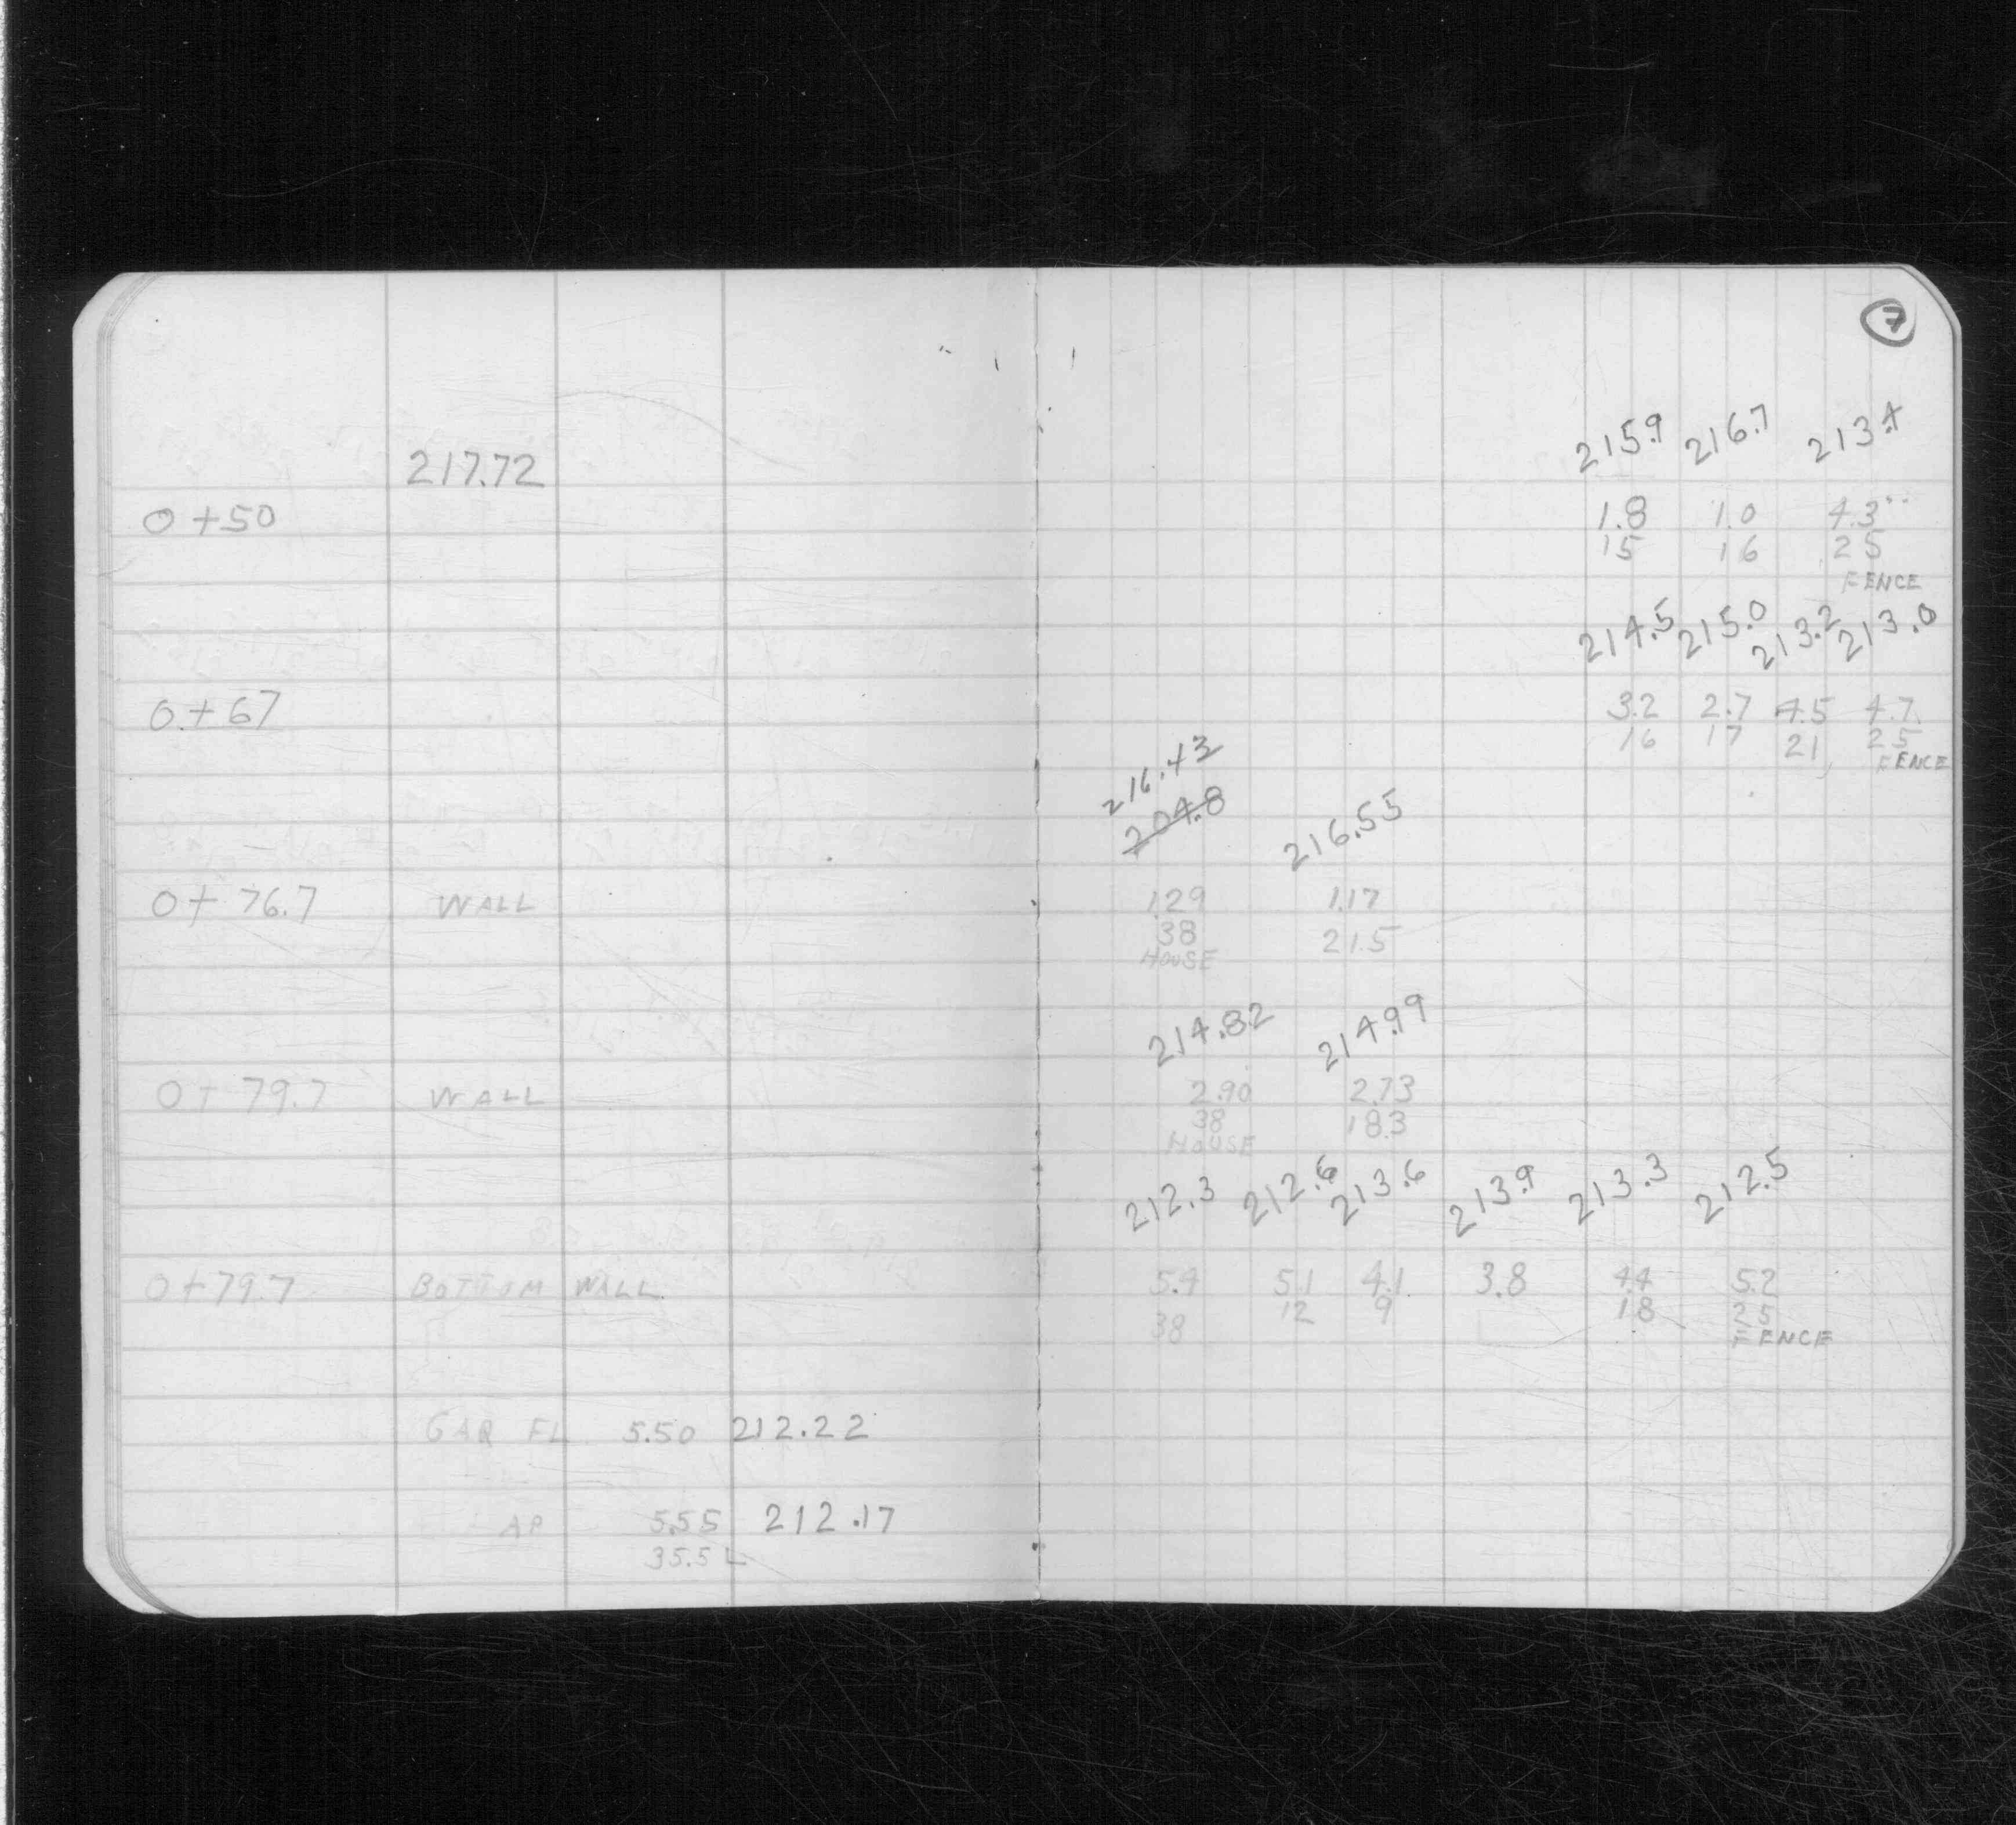 7
215.9 216.7 213.4
217.72
0+50 1.8 1.0 4.3
15 16 25
FENCE
214.5 215.0 213.2 213.0
0+67 3.2 2.7 4.5 4.7
16 17 21 25
FENCE
216.43
204.8 216.55
0+76.7 WALL 1.29 1.17
38 21.5
HOUSE
214.82 214.99
0+79.7 WALL 2.90 2.73
38 18.3
HOUSE
212.3 212.6 213.6 213.9 213.3 212.5
0+79.7 BOTTOM WALL 5.4 5.1 4.1 3.8 4.4 5.2
38 12 9 18 25
FENCE
GAR FL 5.50 212.22
AP 5.55 212.17
35.5 L